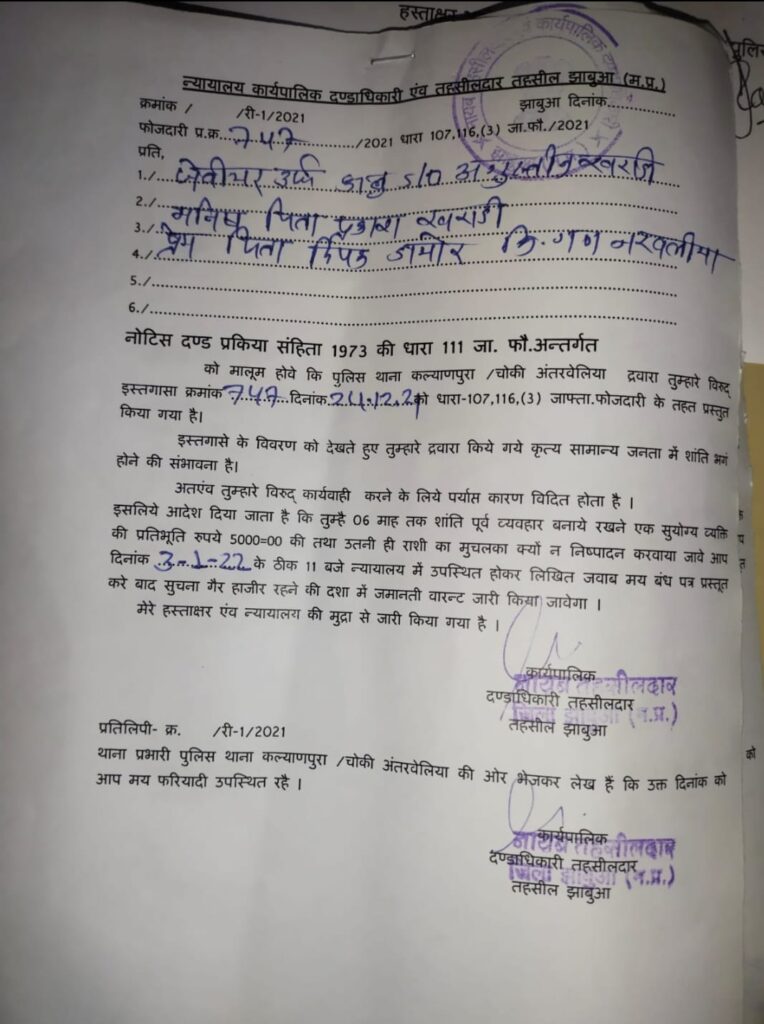 हस्ताक्षर
पुलिस
न्यायालय कार्यपालिक दण्डाधिकारी एंव तहसीलदार तहसील झाबुआ (म.प्र.)
क्रमांक / /री-1/2021 झाबुआ दिनांक................
फोजदारी प्र.क्र...747.../2021 धारा 107,116,(3) जा.फौ./2021
प्रति,
1./ s/o
2./ मनिष पिता प्रकाश खराडी
3./ प्रेम पिता दिपक डामोर नि.गण नरवलीया
4./
5./
6./
नोटिस दण्ड प्रकिया संहिता 1973 की धारा 111 जा. फौ.अन्तर्गत
को मालूम होवे कि पुलिस थाना कल्याणपुरा /चोकी अंतरवेलिया द्रवारा तुम्हारे विरुद्
इस्तगासा क्रमांक 747 दिनांक 24.12.21 को धारा-107,116,(3) जाफ्ता.फोजदारी के तहत प्रस्तुत
किया गया है।
इस्तगासे के विवरण को देखते हुए तुम्हारे द्रवारा किये गये कृत्य सामान्य जनता में शांति भगं
होने की संभावना है।
अतएंव तुम्हारे विरुद् कार्यवाही करने के लिये पर्याप्त कारण विदित होता है ।
इसलिये आदेश दिया जाता है कि तुम्है 06 माह तक शांति पूर्व व्यवहार बनाये रखने एक सुयोग्य व्यक्ति
की प्रतिभूति रुपये 5000=00 की तथा उतनी ही राशी का मुचलका क्यों न निष्पादन करवाया जावे आप
दिनांक 3-1-22 के ठीक 11 बजे न्यायालय में उपस्थित होकर लिखित जवाब मय बंध पत्र प्रस्तूत
करे बाद सुचना गैर हाजीर रहने की दशा में जमानती वारन्ट जारी किया जावेगा ।
मेरे हस्ताक्षर एंव न्यायालय की मुद्रा से जारी किया गया है ।
कार्यपालिक
नायब तहसीलदार
दण्डाधिकारी तहसीलदार
जिला झाबुआ (म.प्र.)
तहसील झाबुआ
प्रतिलिपी- क्र. /री-1/2021
थाना प्रभारी पुलिस थाना कल्याणपुरा /चोकी अंतरवेलिया की ओर भेजकर लेख हैं कि उक्त दिनांक को
आप मय फरियादी उपस्थित रहै ।
कार्यपालिक
नायब तहसीलदार
दण्डाधिकारी तहसीलदार
जिला झाबुआ (म.प्र.)
तहसील झाबुआ